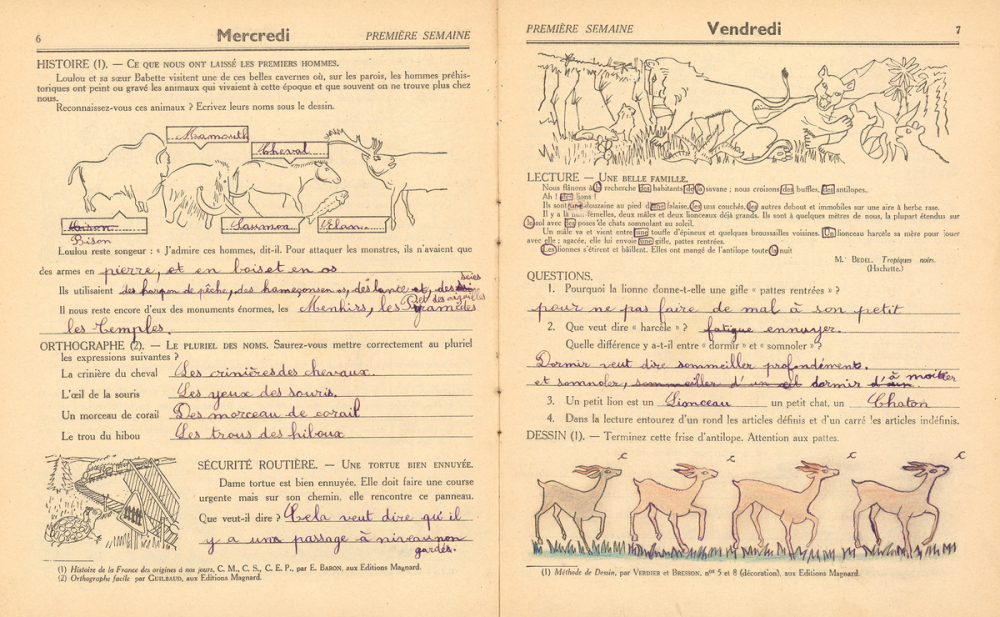 6
Mercredi
PREMIÈRE SEMAINE
HISTOIRE (1). — CE QUE NOUS ONT LAISSÉ LES PREMIERS HOMMES.
Loulou et sa sœur Babette visitent une de ces belles cavernes où, sur les parois, les hommes préhis-
toriques ont peint ou gravé les animaux qui vivaient à cette époque et que souvent on ne trouve plus chez
nous.
Reconnaissez-vous ces animaux ? Ecrivez leurs noms sous le dessin.
Mamouth
Cheval
Saumon
Elan
Bison
Loulou reste songeur : « J'admire ces hommes, dit-il. Pour attaquer les monstres, ils n'avaient que
des armes en pierre, et en bois et en os
Ils utilisaient des harpon de pêche, des hameçons en os, des lance et, des scies
et des aiguilles
Il nous reste encore d'eux des monuments énormes, les Menhirs, les
les Temples.
ORTHOGRAPHE (2). — LE PLURIEL DES NOMS. Saurez-vous mettre correctement au pluriel
les expressions suivantes ?
La crinière du cheval Les crinières des chevaux.
L'œil de la souris Les yeux des souris.
Un morceau de corail Des morceau de corail
Le trou du hibou Les trous des hiboux
SÉCURITÉ ROUTIÈRE. — UNE TORTUE BIEN ENNUYÉE.
Dame tortue est bien ennuyée. Elle doit faire une course
urgente mais sur son chemin, elle rencontre ce panneau.
Que veut-il dire ? Cela veut dire qu'il
y a un passage à niveau non
gardés.
(1) Histoire de la France des origines à nos jours, C. M., C. S., C. E. P., par E. BARON, aux Editions Magnard.
(2) Orthographe facile, par GUILBAUD, aux Editions Magnard.
PREMIÈRE SEMAINE
Vendredi
7
LECTURE — UNE BELLE FAMILLE.
Nous flânons à la recherche des habitants de la savane ; nous croisons des buffles, des antilopes.
Ah ! des lions !
Ils sont une douzaine au pied d'une falaise, les uns couchés, les autres debout et immobiles sur une aire à herbe rase.
Il y a là femelles, deux mâles et deux lionceaux déjà grands. Ils sont à quelques mètres de nous, la plupart étendus sur
le sol avec des poses de chats somnolant au soleil.
Un mâle va et vient entre une touffe d'épineux et quelques broussailles voisines. Un lionceau harcèle sa mère pour jouer
avec elle ; agacée, elle lui envoie une gifle, pattes rentrées.
Les lionnes s'étirent et bâillent. Elles ont mangé de l'antilope toute la nuit
M. BEDEL. Tropiques noirs.
(Hachette.)
QUESTIONS.
1. Pourquoi la lionne donne-t-elle une gifle « pattes rentrées » ?
pour ne pas faire de mal à son petit
2. Que veut dire « harcèle » ? fatigue ennuyer.
Quelle différence y a-t-il entre « dormir » et « somnoler » ?
Dormir veut dire sommeiller profondément.
et somnoler, sommeiller d'un œil dormir d'un à moitier
3. Un petit lion est un Lionceau un petit chat, un Chaton
4. Dans la lecture entourez d'un rond les articles définis et d'un carré les articles indéfinis.
DESSIN (1). — Terminez cette frise d'antilope. Attention aux pattes.
(1) Méthode de Dessin, par VERDIER et BRESSON, nos 5 et 8 (décoration), aux Editions Magnard.